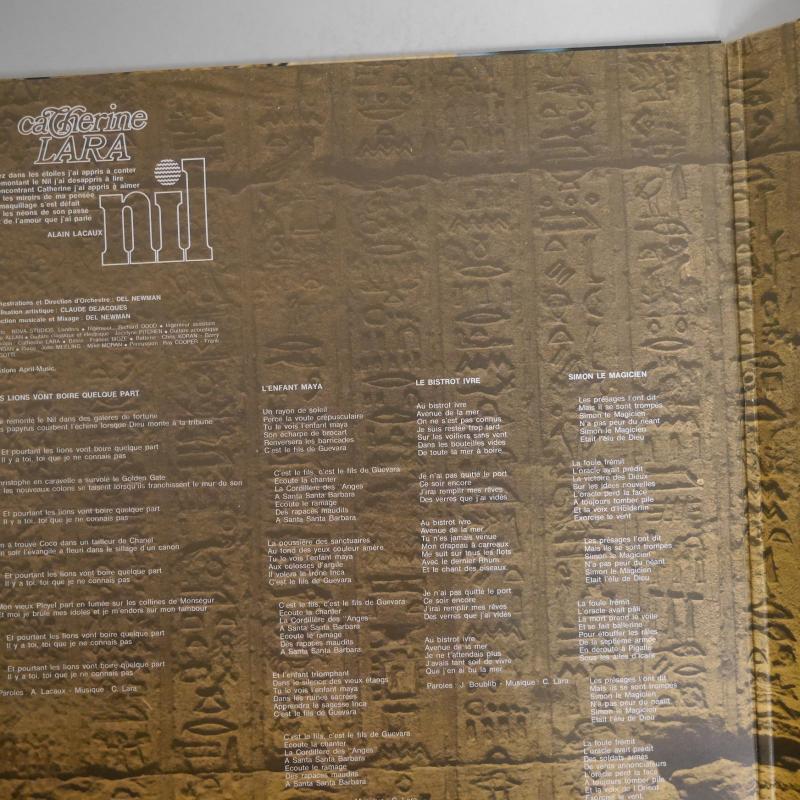 catherine
LARA
nil
ez dans les étoiles j'ai appris à conter
emontant le Nil j'ai désappris à lire
encontrant Catherine j'ai appris à aimer
les miroirs de ma pensée
maquillage s'est défait
les néons de son passé
de l'amour que j'ai parlé
ALAIN LACAUX
hestrations et Direction d'Orchestre : DEL NEWMAN
lisation artistique : CLAUDE DEJACQUES
ction musicale et Mixage : DEL NEWMAN
NOVA STUDIOS, Londres • Ingénieur : Richard DODD • Ingénieur assistant
ALLAN • Guitare classique et électrique : Jocelyne PITCHEN • Guitare acoustique
Catherine LARA • Basse : Francis MOZE • Batterie : Chris KORAN - Barry
MORGAN • Mike MORAN • Percussion : Ray COOPER - Frank
RICOTTI
tions April-Music.
S LIONS VONT BOIRE QUELQUE PART
e remonte le Nil dans des galères de fortune
s papyrus courbent l'échine lorsque Dieu monte à la tribune
Et pourtant les lions vont boire quelque part
Il y a toi, toi que je ne connais pas
ristophe en caravelle a survolé le Golden Gate
les nouveaux colons se taisent lorsqu'ils franchissent le mur du son
Et pourtant les lions vont boire quelque part
Il y a toi, toi que je ne connais pas
n a trouvé Coco dans un tailleur de Chanel
n soir l'évangile a fleuri dans le sillage d'un canon
Et pourtant les lions vont boire quelque part
Il y a toi, toi que je ne connais pas
Mon vieux Pleyel part en fumée sur les collines de Monségur
Et moi je brûle mes idoles et je m'endors sur mon tambour
Et pourtant les lions vont boire quelque part
Il y a toi, toi que je ne connais pas
Et pourtant les lions vont boire quelque part
Il y a toi, toi que je ne connais pas
Paroles : A. Lacaux - Musique : C. Lara
L'ENFANT MAYA
Un rayon de soleil
Perce la voûte crépusculaire
Tu le vois l'enfant maya
Son écharpe de brocart
Renversera les barricades
C'est le fils de Guevara
C'est le fils, c'est le fils de Guevara
Ecoute la chanter
La Cordillère des "Anges
A Santa Santa Barbara
Ecoute le ramage
Des rapaces maudits
A Santa Santa Barbara
La poussière des sanctuaires
Au fond des yeux couleur amère
Tu le vois l'enfant maya
Aux colosses d'argile
Il volera le trône Inca
C'est le fils de Guevara
C'est le fils, c'est le fils de Guevara
Ecoute la chanter
La Cordillère des "Anges
A Santa Santa Barbara
Ecoute le ramage
Des rapaces maudits
A Santa Santa Barbara
Et l'enfant triomphant
Dans le silence des vieux étangs
Tu le vois l'enfant maya
Dans les ruines sacrées
Apprendra la sagesse Inca
C'est le fils de Guevara
C'est le fils, c'est le fils de Guevara
Ecoute la chanter
La Cordillère des "Anges
A Santa Santa Barbara
Ecoute le ramage
Des rapaces maudits
A Santa Santa Barbara
LE BISTROT IVRE
Au bistrot ivre
Avenue de la mer
On ne s'est pas connus
Je suis resté trop tard
Sur les voiliers sans vent
Dans les bouteilles vides
De toute la mer à boire
Je n'ai pas quitté le port
Ce soir encore
J'irai remplir mes rêves
Des verres que j'ai vidés
Au bistrot ivre
Avenue de la mer
Tu n'es jamais venue
Mon drapeau à carreaux
Me suit sur tous les flots
Avec le dernier Rhum
Et le chant des oiseaux
Je n'ai pas quitté le port
Ce soir encore
J'irai remplir mes rêves
Des verres que j'ai vidés
Au bistrot ivre
Avenue de la mer
Je ne t'attendais plus
J'avais tant soif de vivre
Que j'en ai bu la mer
Paroles : J. Boublib - Musique : C. Lara
SIMON LE MAGICIEN
Les présages l'ont dit
Mais ils se sont trompés
Simon le Magicien
N'a pas peur du néant
Simon le Magicien
Etait l'élu de Dieu
La foule frémit
L'oracle avait prédit
La victoire des Dieux
Sur les idées nouvelles
L'oracle perd la face
A toujours tomber pile
Et la voix d'Hölderlin
Exorcise le vent
Les présages l'ont dit
Mais ils se sont trompés
Simon le Magicien
N'a pas peur du néant
Simon le Magicien
Etait l'élu de Dieu
La foule frémit
L'oracle avait pâli
La mort prend le voile
Et se fait ballerine
Pour étouffer les râles
De la septième armée
En déroute à Pigalle
Sous les ailes d'Icare
Les présages l'ont dit
Mais ils se sont trompés
Simon le Magicien
N'a pas peur du néant
Simon le Magicien
Etait l'élu de Dieu
La foule frémit
L'oracle avait prédit
Des soldats armés
De vents annonciateurs
L'oracle perd la face
A toujours tomber pile
Et la voix de l'Orient
Exorcise le vent